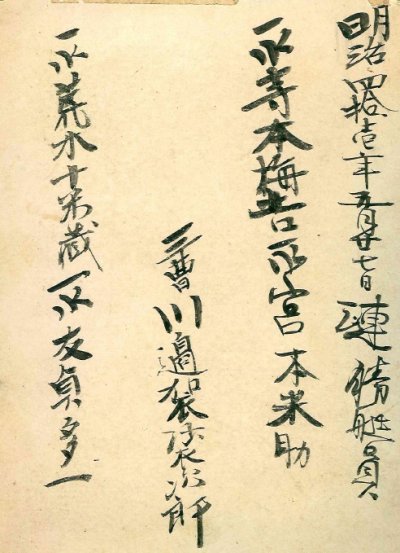 明治四拾壱年五月廿七日 漣 艇員
一水寺本梅吉 一水宮本米助
三曹 川邉袈裟次郎
一水荒 米蔵 一水友貞多一